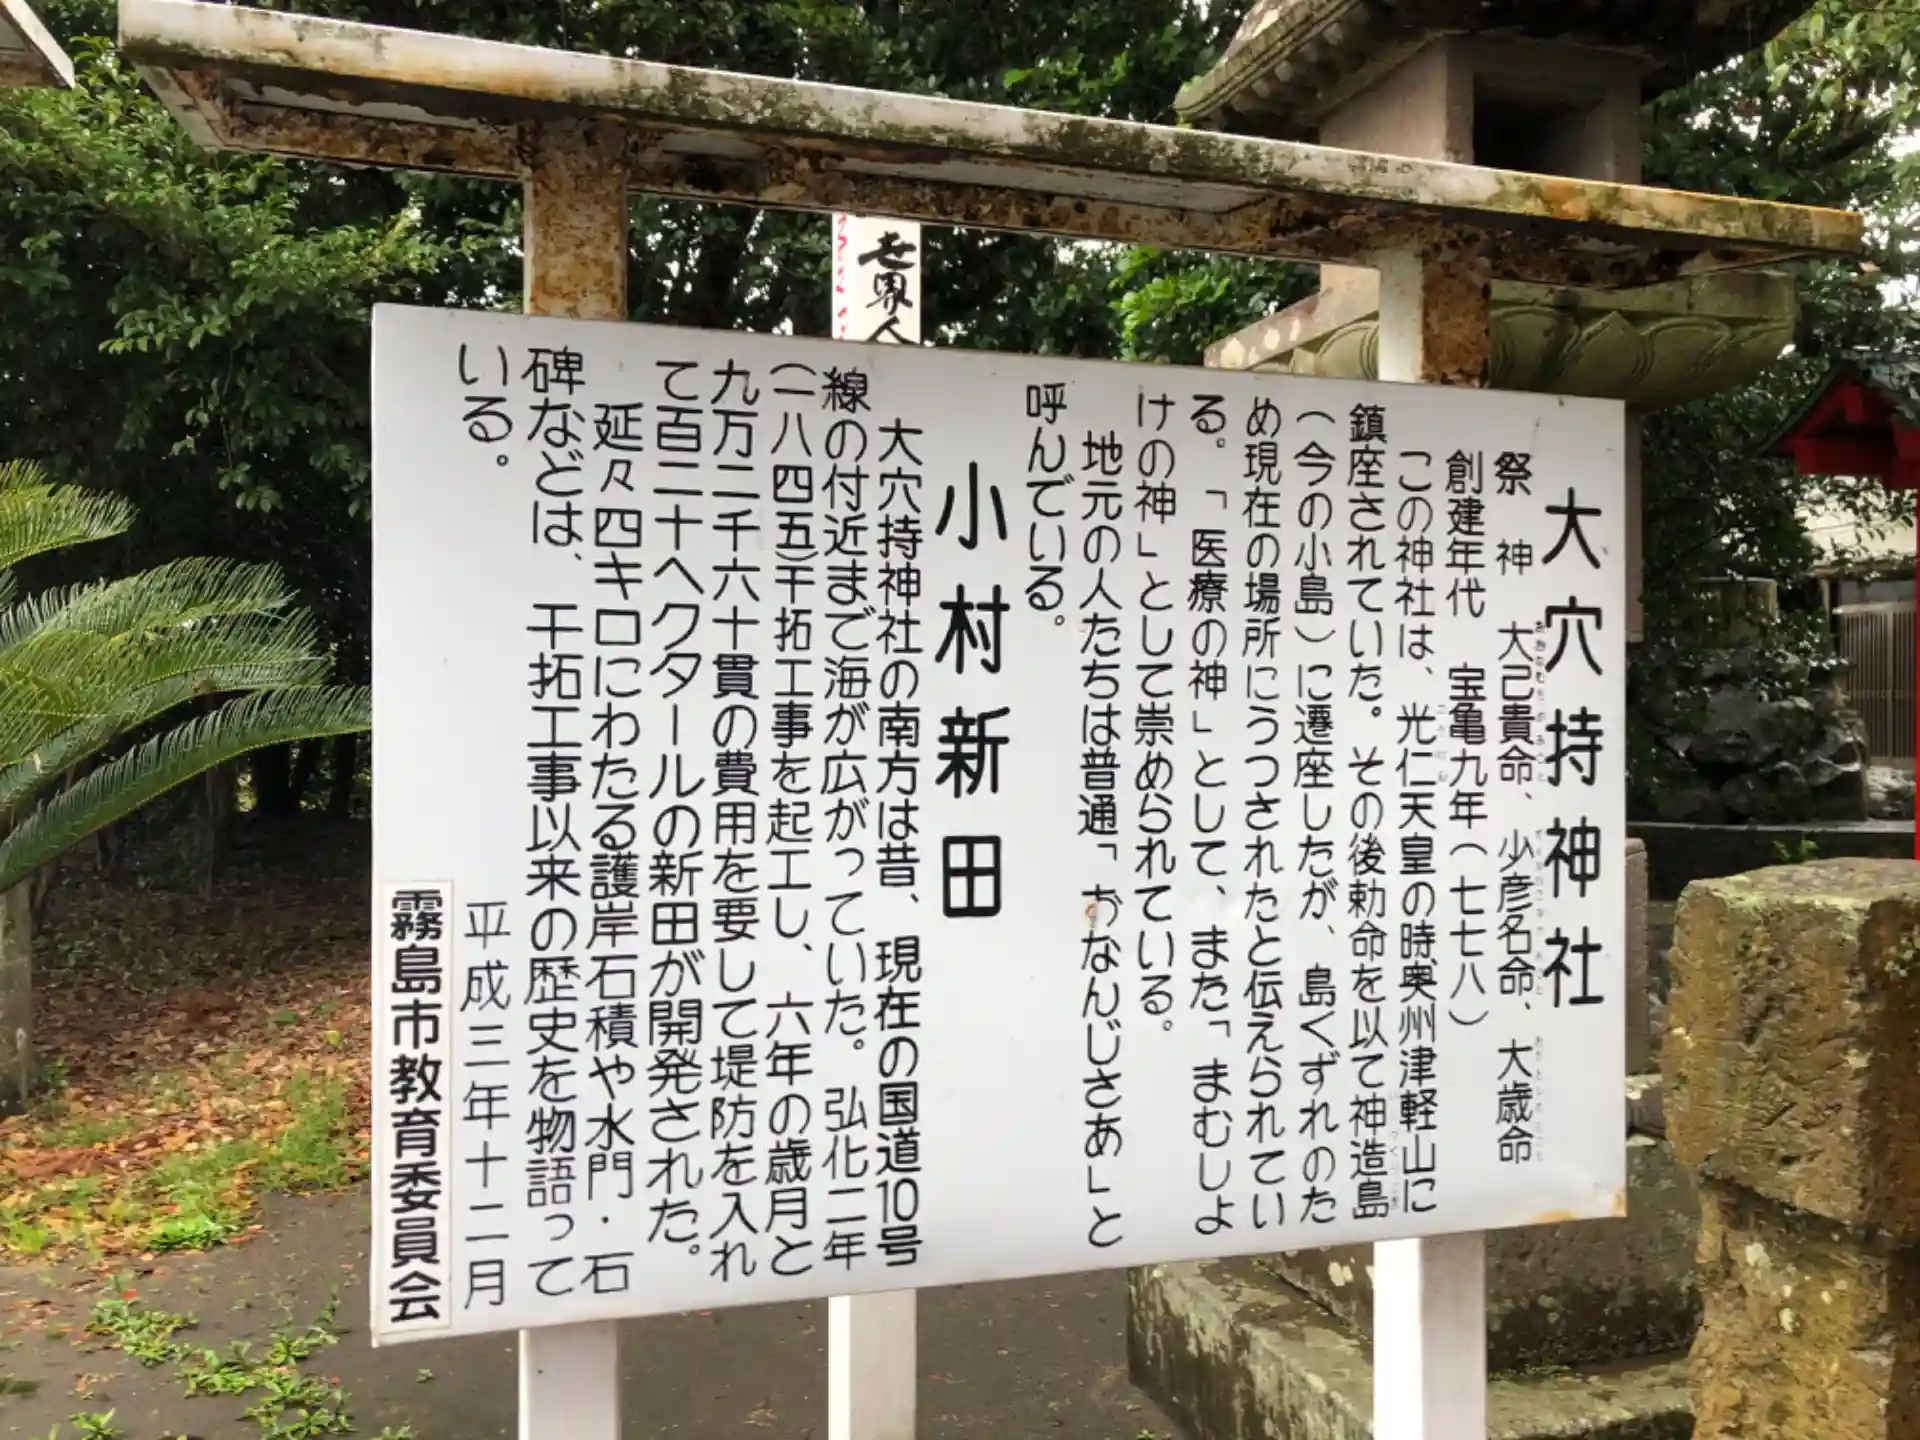 大穴持神社
祭 神 大己貴命、少彦名命、大歳命
創建年代 宝亀九年(七七八)
この神社は、光仁天皇の時奥州津軽山に
鎮座されていた。その後勅命を以て神造島
(今の小島)に遷座したが、島くずれのた
め現在の場所にうつされたと伝えられてい
る。「医療の神」として、また「まむしよ
けの神」として崇められている。
地元の人たちは普通「おなんじさあ」と
呼んでいる。
小村新田
大穴持神社の南方は昔、現在の国道10号
線の付近まで海が広がっていた。弘化二年
(一八四五)干拓工事を起工し、六年の歳月と
九万二千六十貫の費用を要して堤防を入れ
て百二十ヘクタールの新田が開発された。
延々四キロにわたる護岸石積や水門・石
碑などは、干拓工事以来の歴史を物語って
いる。
平成三年十二月
霧島市教育委員会
世界人